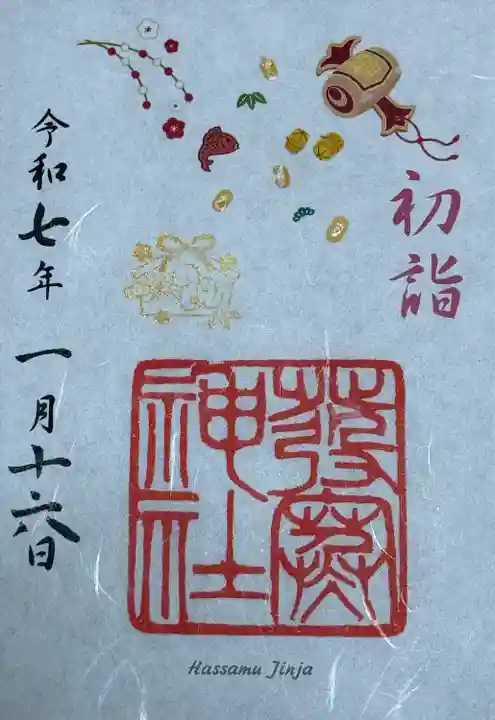 初詣
発寒
神社
令和七年 一月十六日
Hassamu Jinja